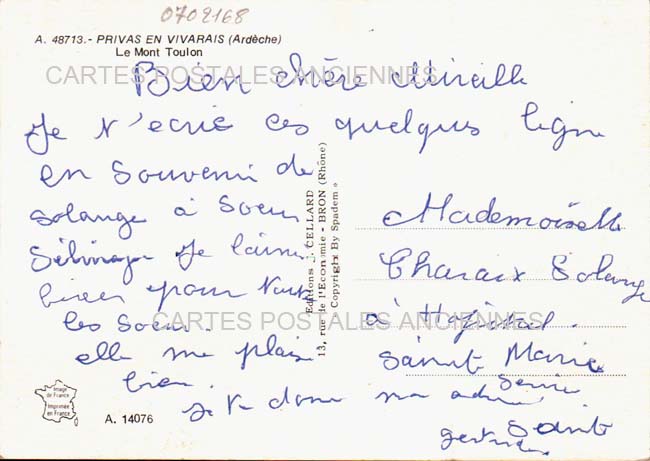 0702168
A. 48713.- PRIVAS EN VIVARAIS (Ardèche)
Le Mont Toulon
CARTES POSTALES ANCIENNES
Bien chère Mireille
Je t'ecrie ces quelques ligne
en souvenir de
solange à Soeur
Je l'aime
bien pour toute
les Soeur.
elle me plais
bien.
je te donne ma
Mademoiselle
Charaix Solange
à Hopital.
Sainte Marie
Service
Saint
Editions J. CELLARD
13, rue de l'Economie - BRON (Rhône)
« Copyright By Spadem »
CARTES POSTALES ANCIENNES
Image
de France
Imprimée
en France
A. 14076